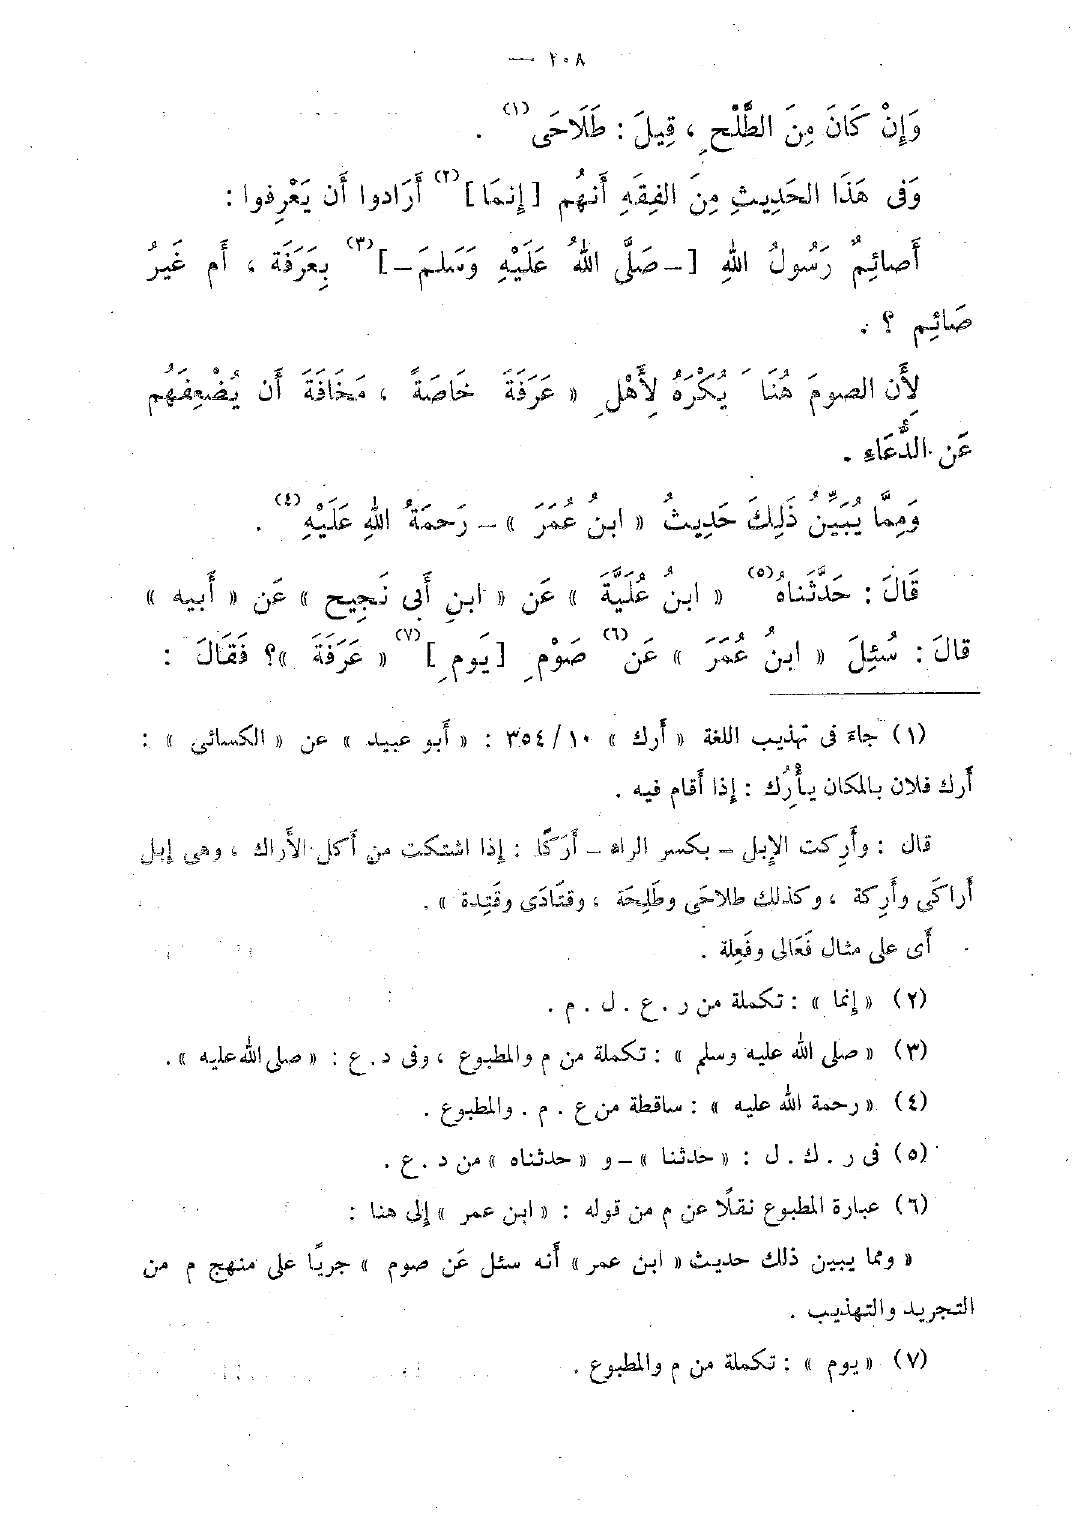 — ٢٠٨
وَإِنْ كَانَ مِنَ الطَّلْحِ ، قِيلَ : طَلَاحَى (١) .
وَفى هَذَا الحَدِيثِ مِنَ الفِقَهِ أَنهُم [ إِنمَا ] (٢) أَرَادوا أَن يَعْرِفوا :
أَصائِمٌ رَسُولُ اللهِ [ – صَلَّى اللهُ عَلَيْهِ وَسَلمَ – ] (٣) بِعَرَفَة ، أَم غَيرُ
صَائِم ؟ .
لِأَن الصومَ هُنَا يُكْرَهُ لِأَهْلِ « عَرَفَةَ خَاصَةً ، مَخَافَةَ أَن يُضْعِفَهُم
عَن الدُّعَاءِ .
وَمِمَّا يُبَيِّنُ ذَلِكَ حَدِيثُ « ابنُ عُمَرَ » – رَحمَةُ اللهِ عَلَيْهِ (٤) .
قَالَ : حَدَّثَناهُ (٥) « ابنُ عُلَيَّةَ » عَن « ابنِ أَبى نَجِيح » عَن « أَبيه »
قالَ : سُئِلَ « ابنُ عُمَرَ » عَن (٦) صَوْمِ [ يَومِ ] (٧) « عَرَفَةَ »؟ فَقَالَ :
(١) جاء فى تهذيب اللغة « أَرك » ٣٥٤/١٠ : « أَبو عبيد » عن « الكسائي » :
أَرك فلان بالمكان يأْرُِك : إذا أَقام فيه .
قال : وأَرِكت الإبل – بكسر الراء – أَرَكًا : إذا اشتكت من أكل الأَراك ، وهى إبل
أَراكَى وأَرِكة ، وكذلك طلاحَى وطَلِحَة ، وقتَادَى وقَتِدة » .
أَى على مثال فَعَالى وفَعِلة .
(٢) « إنما » : تكملة من ر . ع . ل . م .
(٣) « صلى الله عليه وسلم » : تكملة من م والمطبوع ، وفى د . ع : « صلى الله عليه » .
(٤) « رحمة الله عليه » : ساقطة من ع . م . والمطبوع .
(٥) فى ر . ك . ل : « حدثنا » – و « حدثناه » من د . ع .
(٦) عبارة المطبوع نقلًا عن م من قوله : « ابن عمر » إلى هنا :
« ومما يبين ذلك حديث « ابن عمر » أَنه سئل عَن صوم » جريًا على منهج م من
التجريد والتهذيب .
(٧) « يوم » : تكملة من م والمطبوع .